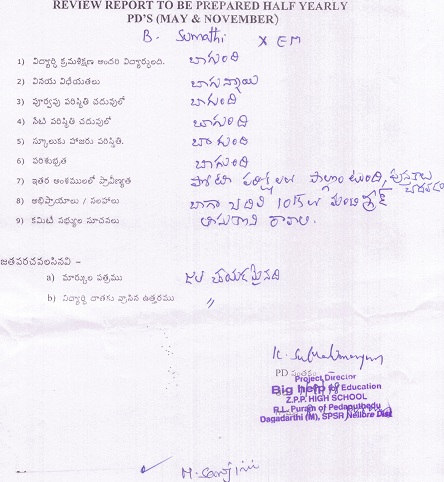 REVIEW REPORT TO BE PREPARED HALF YEARLY
PD'S (MAY & NOVEMBER)
B. Sumathi X EM
1) విద్యార్థి క్రమశిక్షణ అందరి విద్యార్థుంది. బాగుంది
2) వినయ విధేయతలు బాగున్నాయి
3) పూర్వపు పరిస్థితి చదువులో బాగుంది
4) నేటి పరిస్థితి చదువులో బాగుంది
5) స్కూలుకు హాజరు పరిస్థితి. బాగుంది
6) పరిశుభ్రత బాగుంది
7) ఇతర అంశములలో ప్రావీణ్యత పోటీ పాల్గొంటుంది,
8) అభిప్రాయాలు / సలహాలు బాగా చదివి 10th లో మంచి
9) కమిటీ సభ్యుల సూచనలు రావాలి.
జతపరచవలసినవి –
a) మార్కుల పత్రము జత చేయడమైనది
b) విద్యార్థి దాతకు వ్రాసిన ఉత్తరము "
PD సంతకం
Project Director
Big help for Education
Z.P.P. HIGH SCHOOL
R.L. Puram of Pedaputhedu
Dagadarthi (M), SPSR Nellore Dist